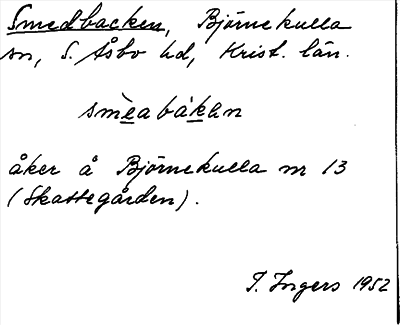 Smedbacken, Björnekulla
sn, S. Åsbo hd, Krist. län.
smèabák̲en
åker å Björnekulla nr 13
(Skattegården).
I. Ingers 1952